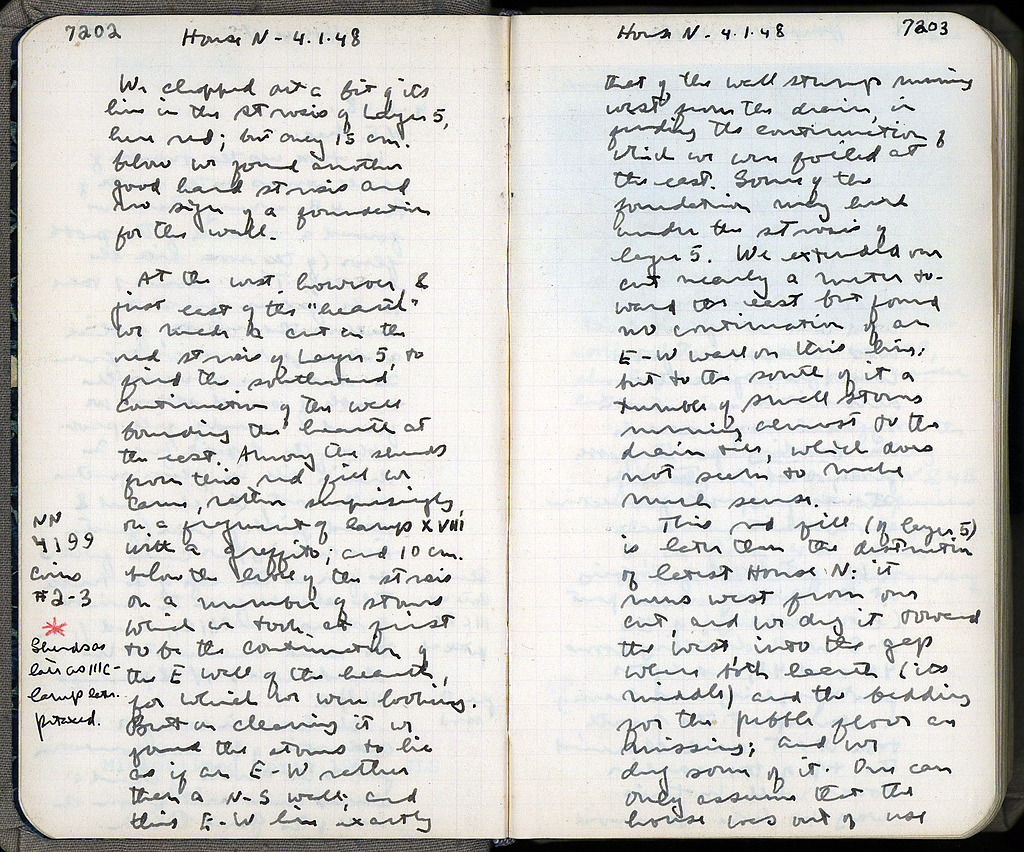 7202
House N - 4.1.48
We chopped out a bit of its
line in the strosis of Layer 5,
here red; but only 15 cm.
below we found another
good hard strosis and
no sign of a foundation
for the wall.
At the west however, &
just east of the "hearth"
we made a cut in the
red strosis of Layer 5, to
find the southward
continuation of the wall
bounding the hearth at
the east. Among the sherds
from this red fill we
came, rather surprisingly,
on a fragment of lamp XVIII
with a graffito; and 10 cm.
below the level of the strosis
on a number of stones
which we took at first
to be the continuation of
the E wall of the hearth,
for which we were looking.
But on cleaning it we
found the stones to lie
as if an E-W rather
than a N-S wall; and
this E-W line exactly
NN
4199
coins
#2-3
Sherds as
late as IIIC -
lamp late.
potaxed.
House N - 4.1.48
7203
that of the wall stump running
west from the drain, in
finding the continuation of
which we were foiled at
the east. Some of the
foundation may be
under the strosis of
layer 5. We extended our
cut nearly a meter to-
ward the east but found
no continuation of an
E-W wall on this line;
but to the south of it a
tumble of small stones
running almost to the
drain tiles, which does
not seem to make
much sense.
This red fill (of layer 5)
is later than the destruction
of latest House N: it
runs west from our
cut, and we dug it toward
the west into the gap
where both hearth (its
middle) and the bedding
for the pebble floor are
missing; and we
dug some of it. One can
only assume that the
house was out of use